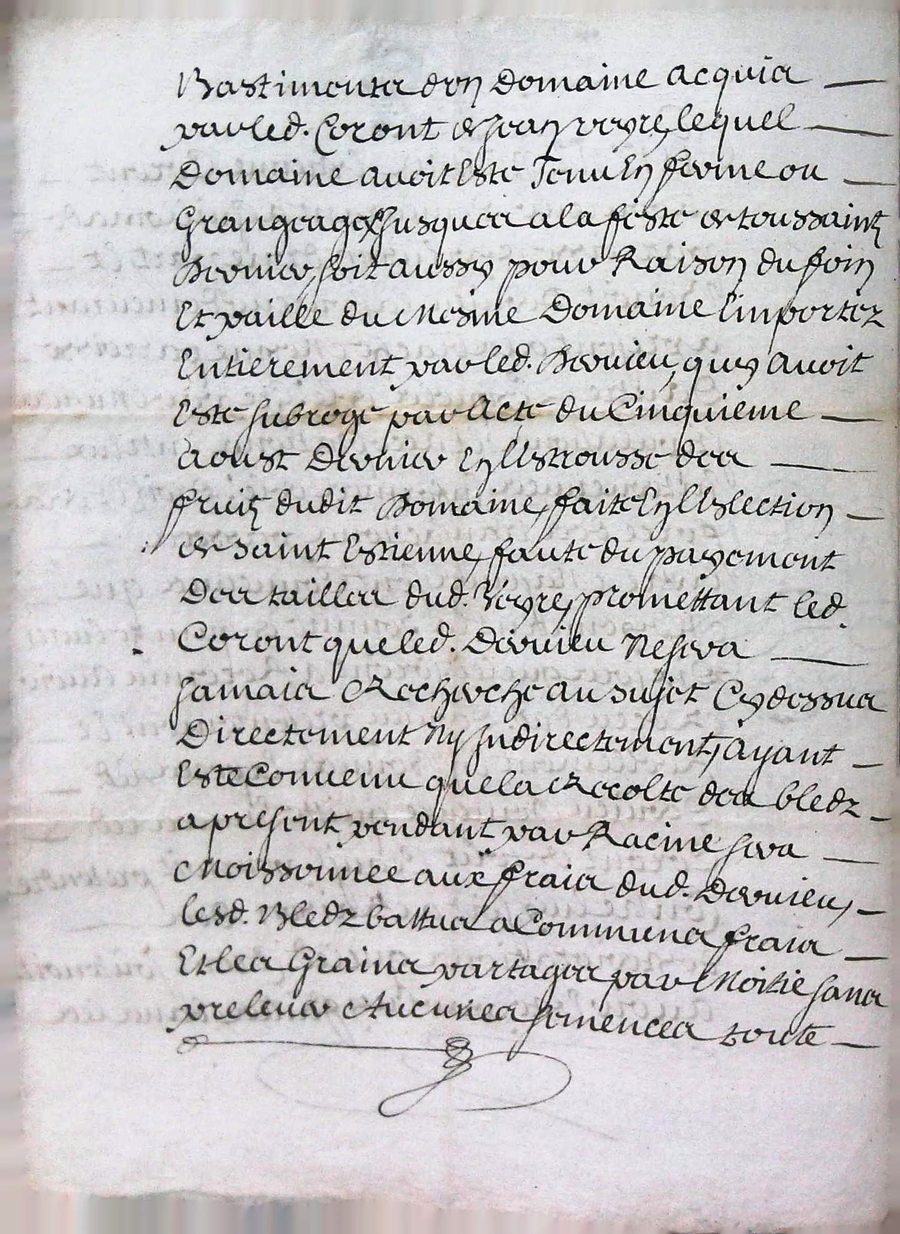 Bastiments d'un Domaine acquis
par led. Coront de Jean veyre, lequel
Domaine avoit Esté Tenu En ferme ou
Grangeage Jusques a la feste de toussaintz
Dernier, soit aussy pour Raison du foin
Et paille du Mesme Domaine Emportez
Entierement par led. Dervieu, quy avoit
Esté subrogé par Acte du Cinquieme
aoust Dernier En L'Estrousse des
fruitz dudit Domaine, faite En L'Eslection
de saint Estienne, faute du payement
Des tailles dud. Veyre, promettant led.
Coront que led. Dervieu Ne sera
Jamais Recherche au sujet Cy dessus
Directement Ny Indirectement, ayant
Esté Convenu que la Recolte des bledz
a present pendant par Racine sera
Moissonnee aux frais dud. Dervieu,
lesd. Bledz battus a Communs frais
Et les Grains partages par Moitie sans
prelever Aucunes semences toute